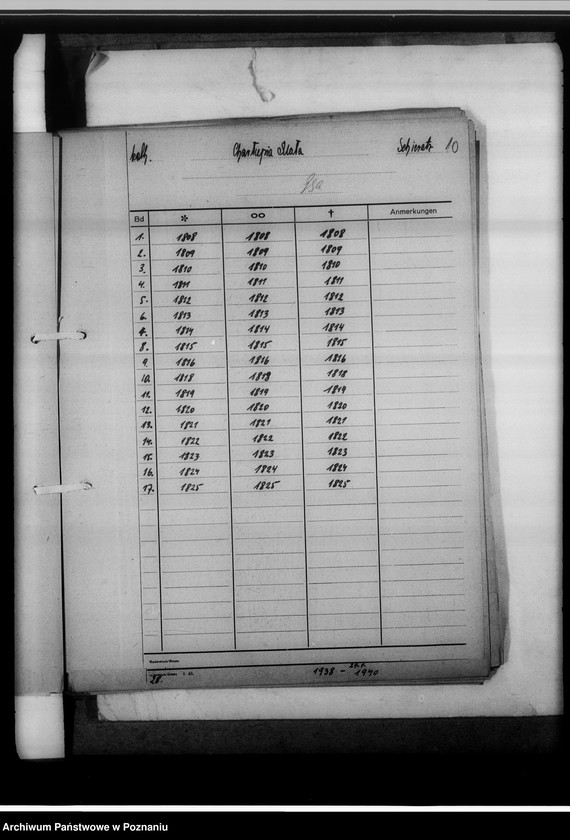 kath. Charłupia Mała Schieratz 10
Bd * oo † Anmerkungen
1. 1808 1808 1808
2. 1809 1809 1809
3. 1810 1810 1810
4. 1811 1811 1811
5. 1812 1812 1812
6. 1813 1813 1813
7. 1814 1814 1814
8. 1815 1815 1815
9. 1816 1816 1816
10. 1818 1818 1818
11. 1819 1819 1819
12. 1820 1820 1820
13. 1821 1821 1821
14. 1822 1822 1822
15. 1823 1823 1823
16. 1824 1824 1824
17. 1825 1825 1825
1938 - 1940
Archiwum Państwowe w Poznaniu